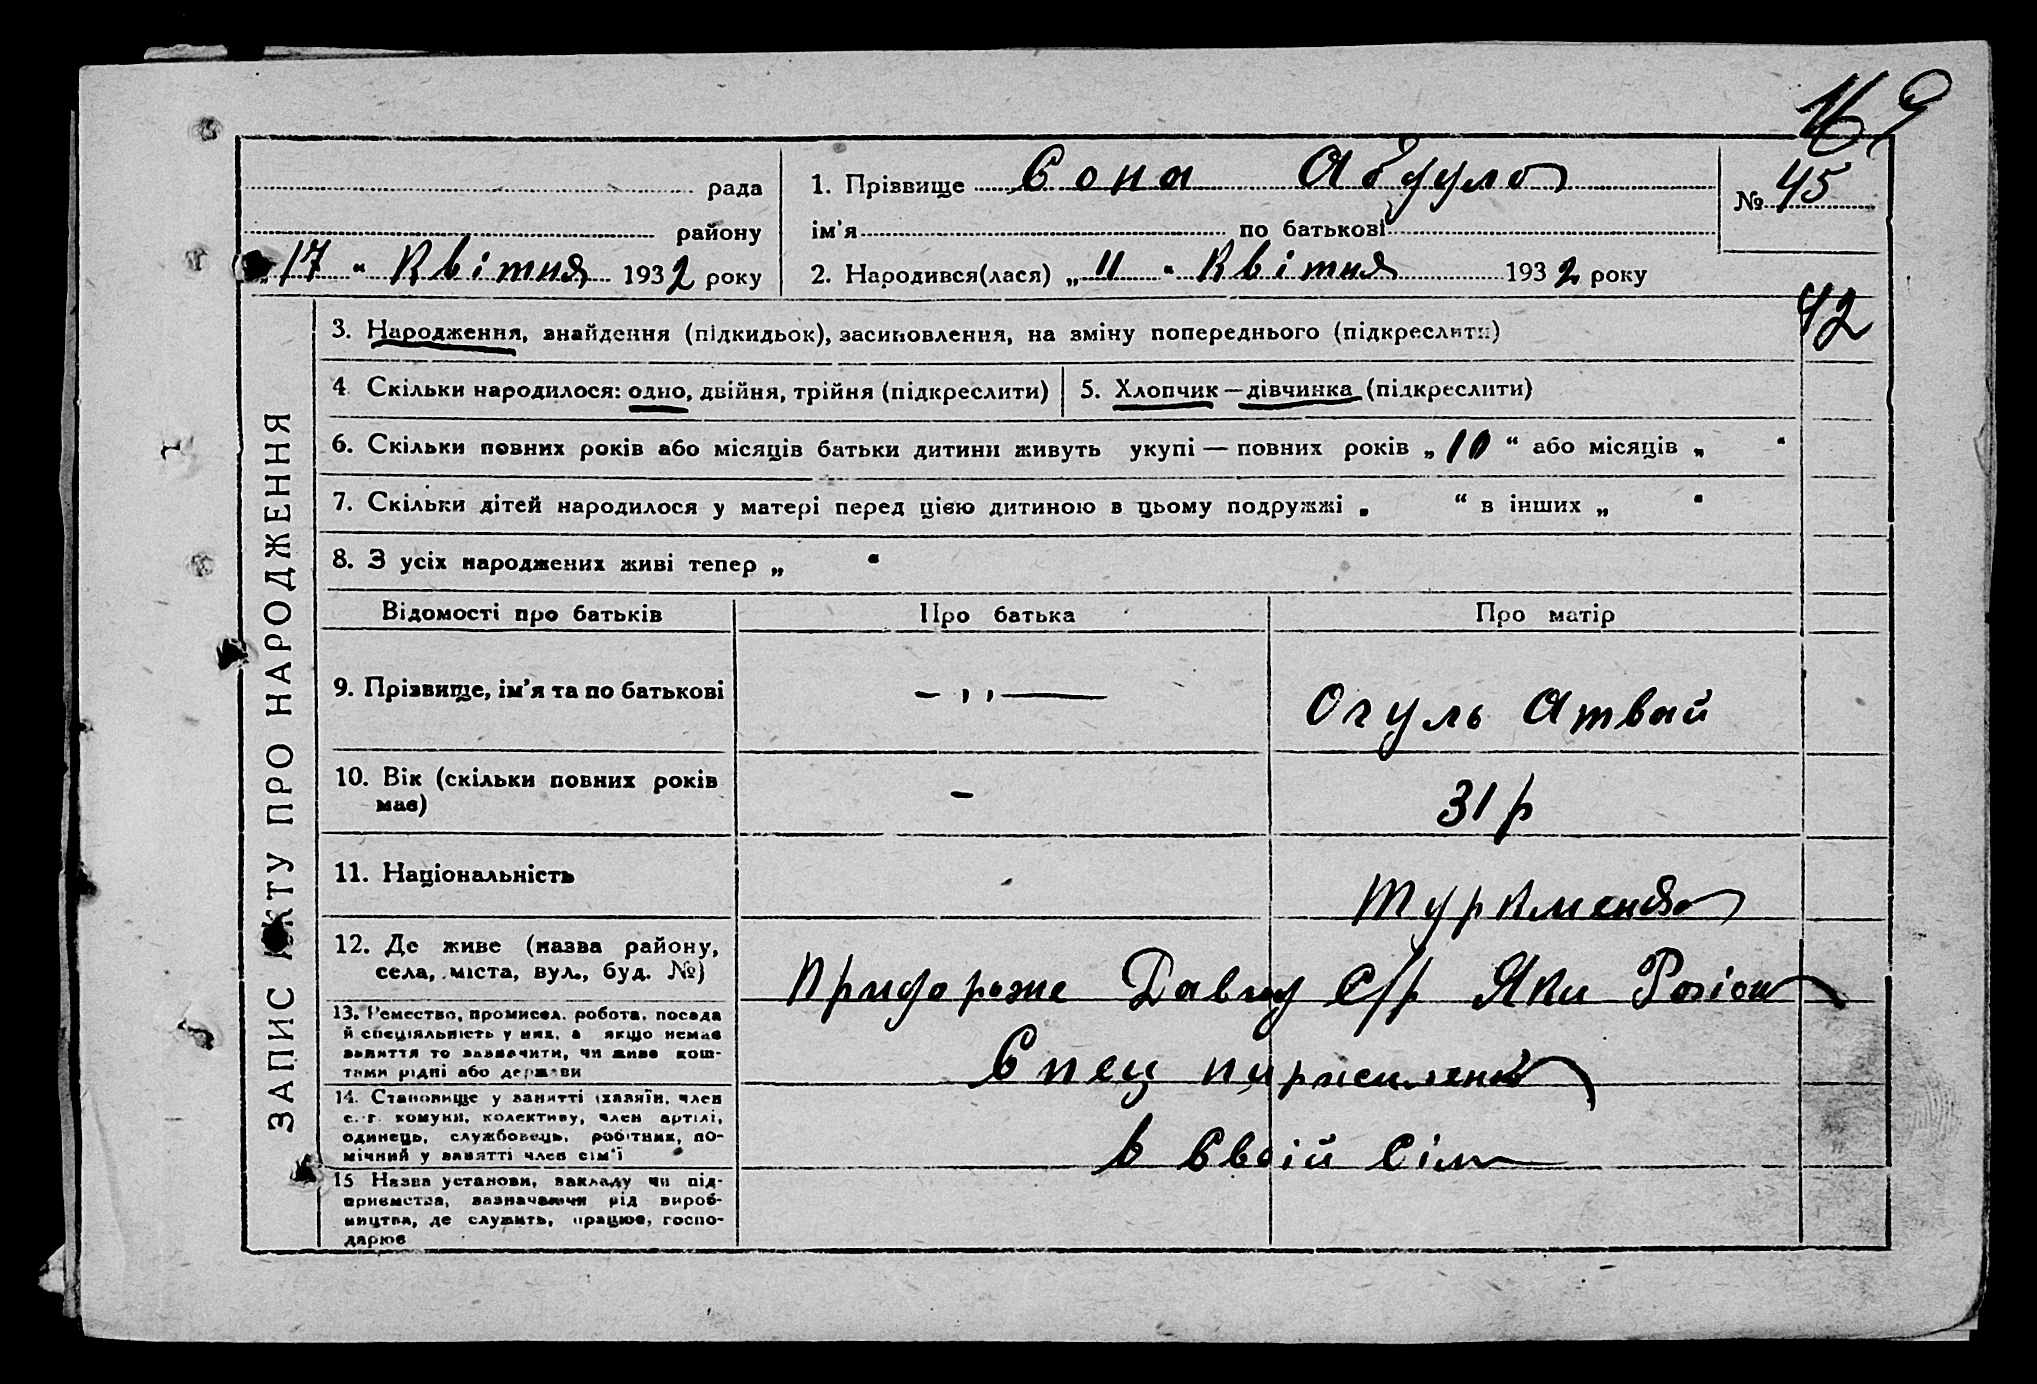 169
рада 1. Прізвище Сона Абдула № 45
району ім'я по батькові
„17“ Квітня 1932 року 2. Народився(лася) „11“ Квітня 1932 року
42
ЗАПИС АКТУ ПРО НАРОДЖЕННЯ
3. Народження, знайдення (підкидьок), засиновлення, на зміну попереднього (підкреслити)
4 Скільки народилося: одно, двійня, трійня (підкреслити) 5. Хлопчик — дівчинка (підкреслити)
6. Скільки повних років або місяців батьки дитини живуть укупі — повних років „10“ або місяців „ “
7. Скільки дітей народилося у матері перед цією дитиною в цьому подружжі „ “ в інших „ “
8. З усіх народжених живі тепер „ “
Відомості про батьків Про батька Про матір
9. Прізвище, ім'я та по батькові — ,, — Огуль Атвай
10. Вік (скільки повних років
має) — 31 р
11. Національність Туркменка
12. Де живе (назва району,
села, міста, вул., буд. №) С/р Яки
13. Ремество, промисел, робота, посада
й спеціяльність у них, а якщо немає
заняття то зазначити, чи живе кош-
тами рідні або держави Спец
14. Становище у занятті (хазяїн, член
с.-г. комуни, колективу, член артілі,
одинець, службовець, робітник, по-
мічний у занятті член сім'ї в Своїй Сімї
15 Назва установи, закладу чи під-
приємства, зазначаючи рід вироб-
ництва, де служить, працює, госпо-
дарює